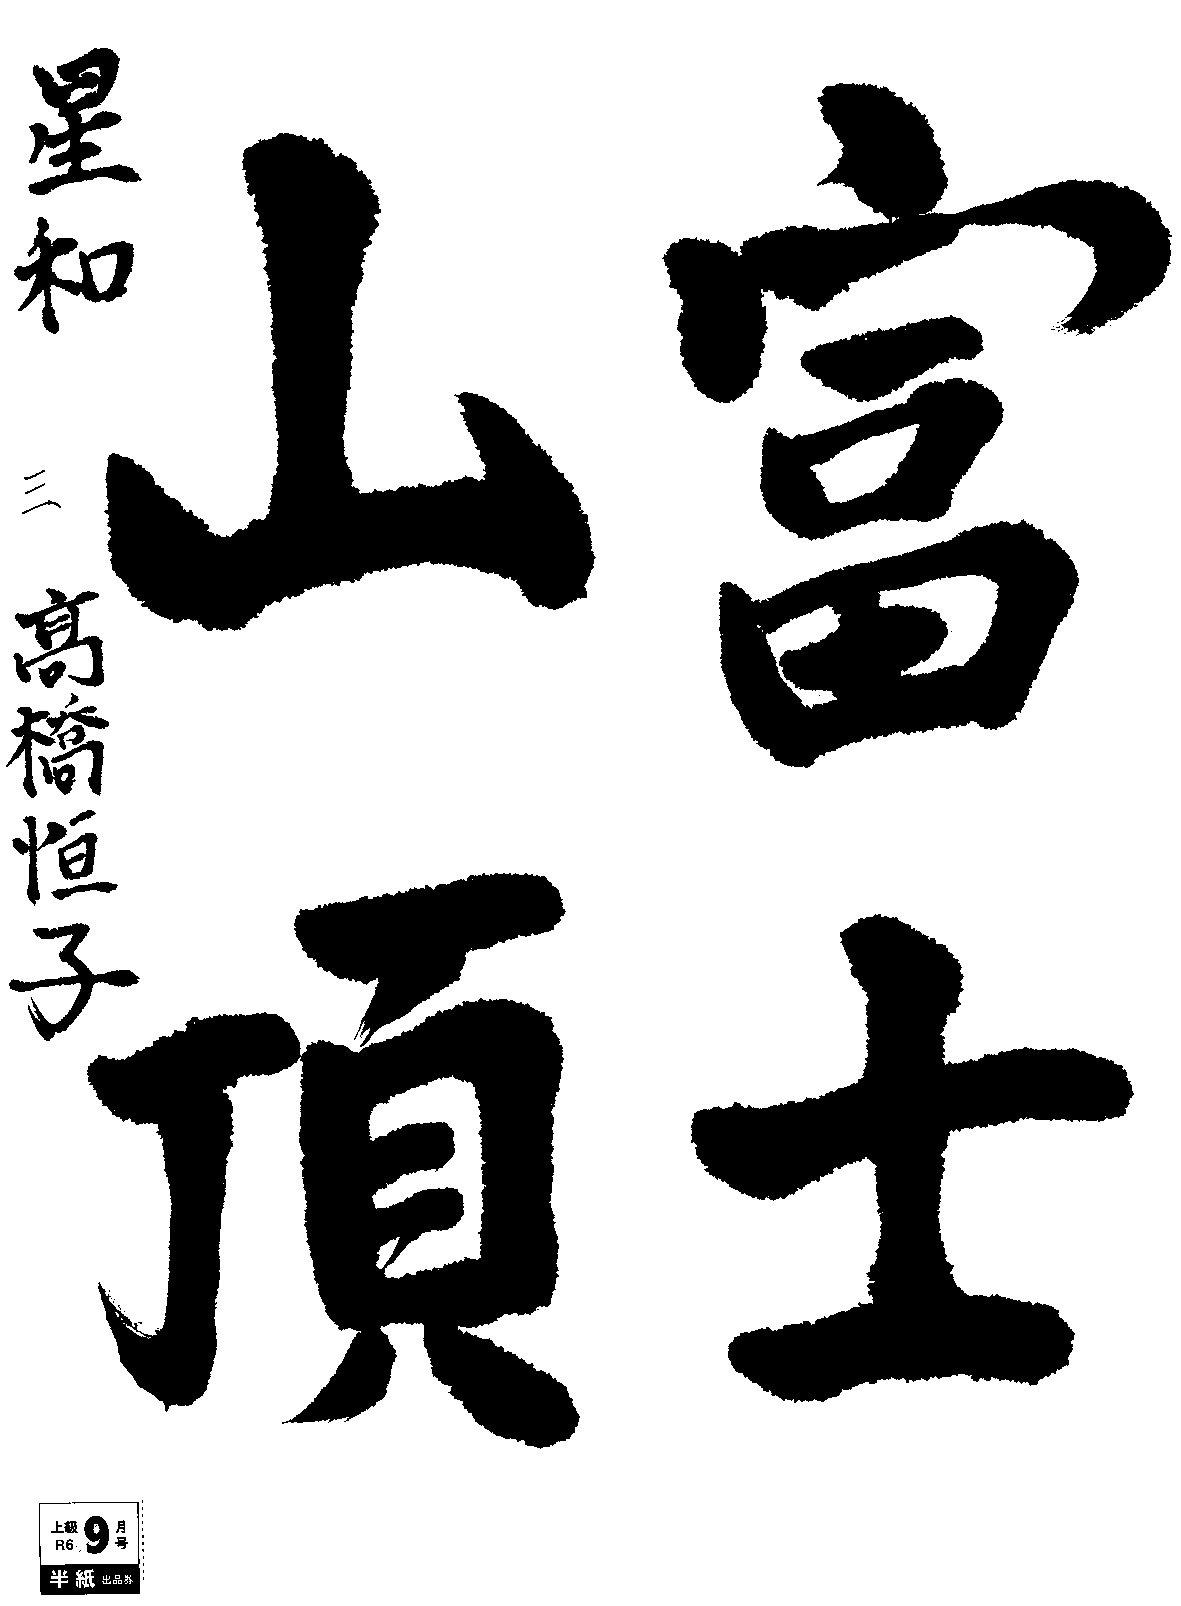 富士
山頂
星和 三 髙橋恒子
上級 R6 9月号
半紙 出品券